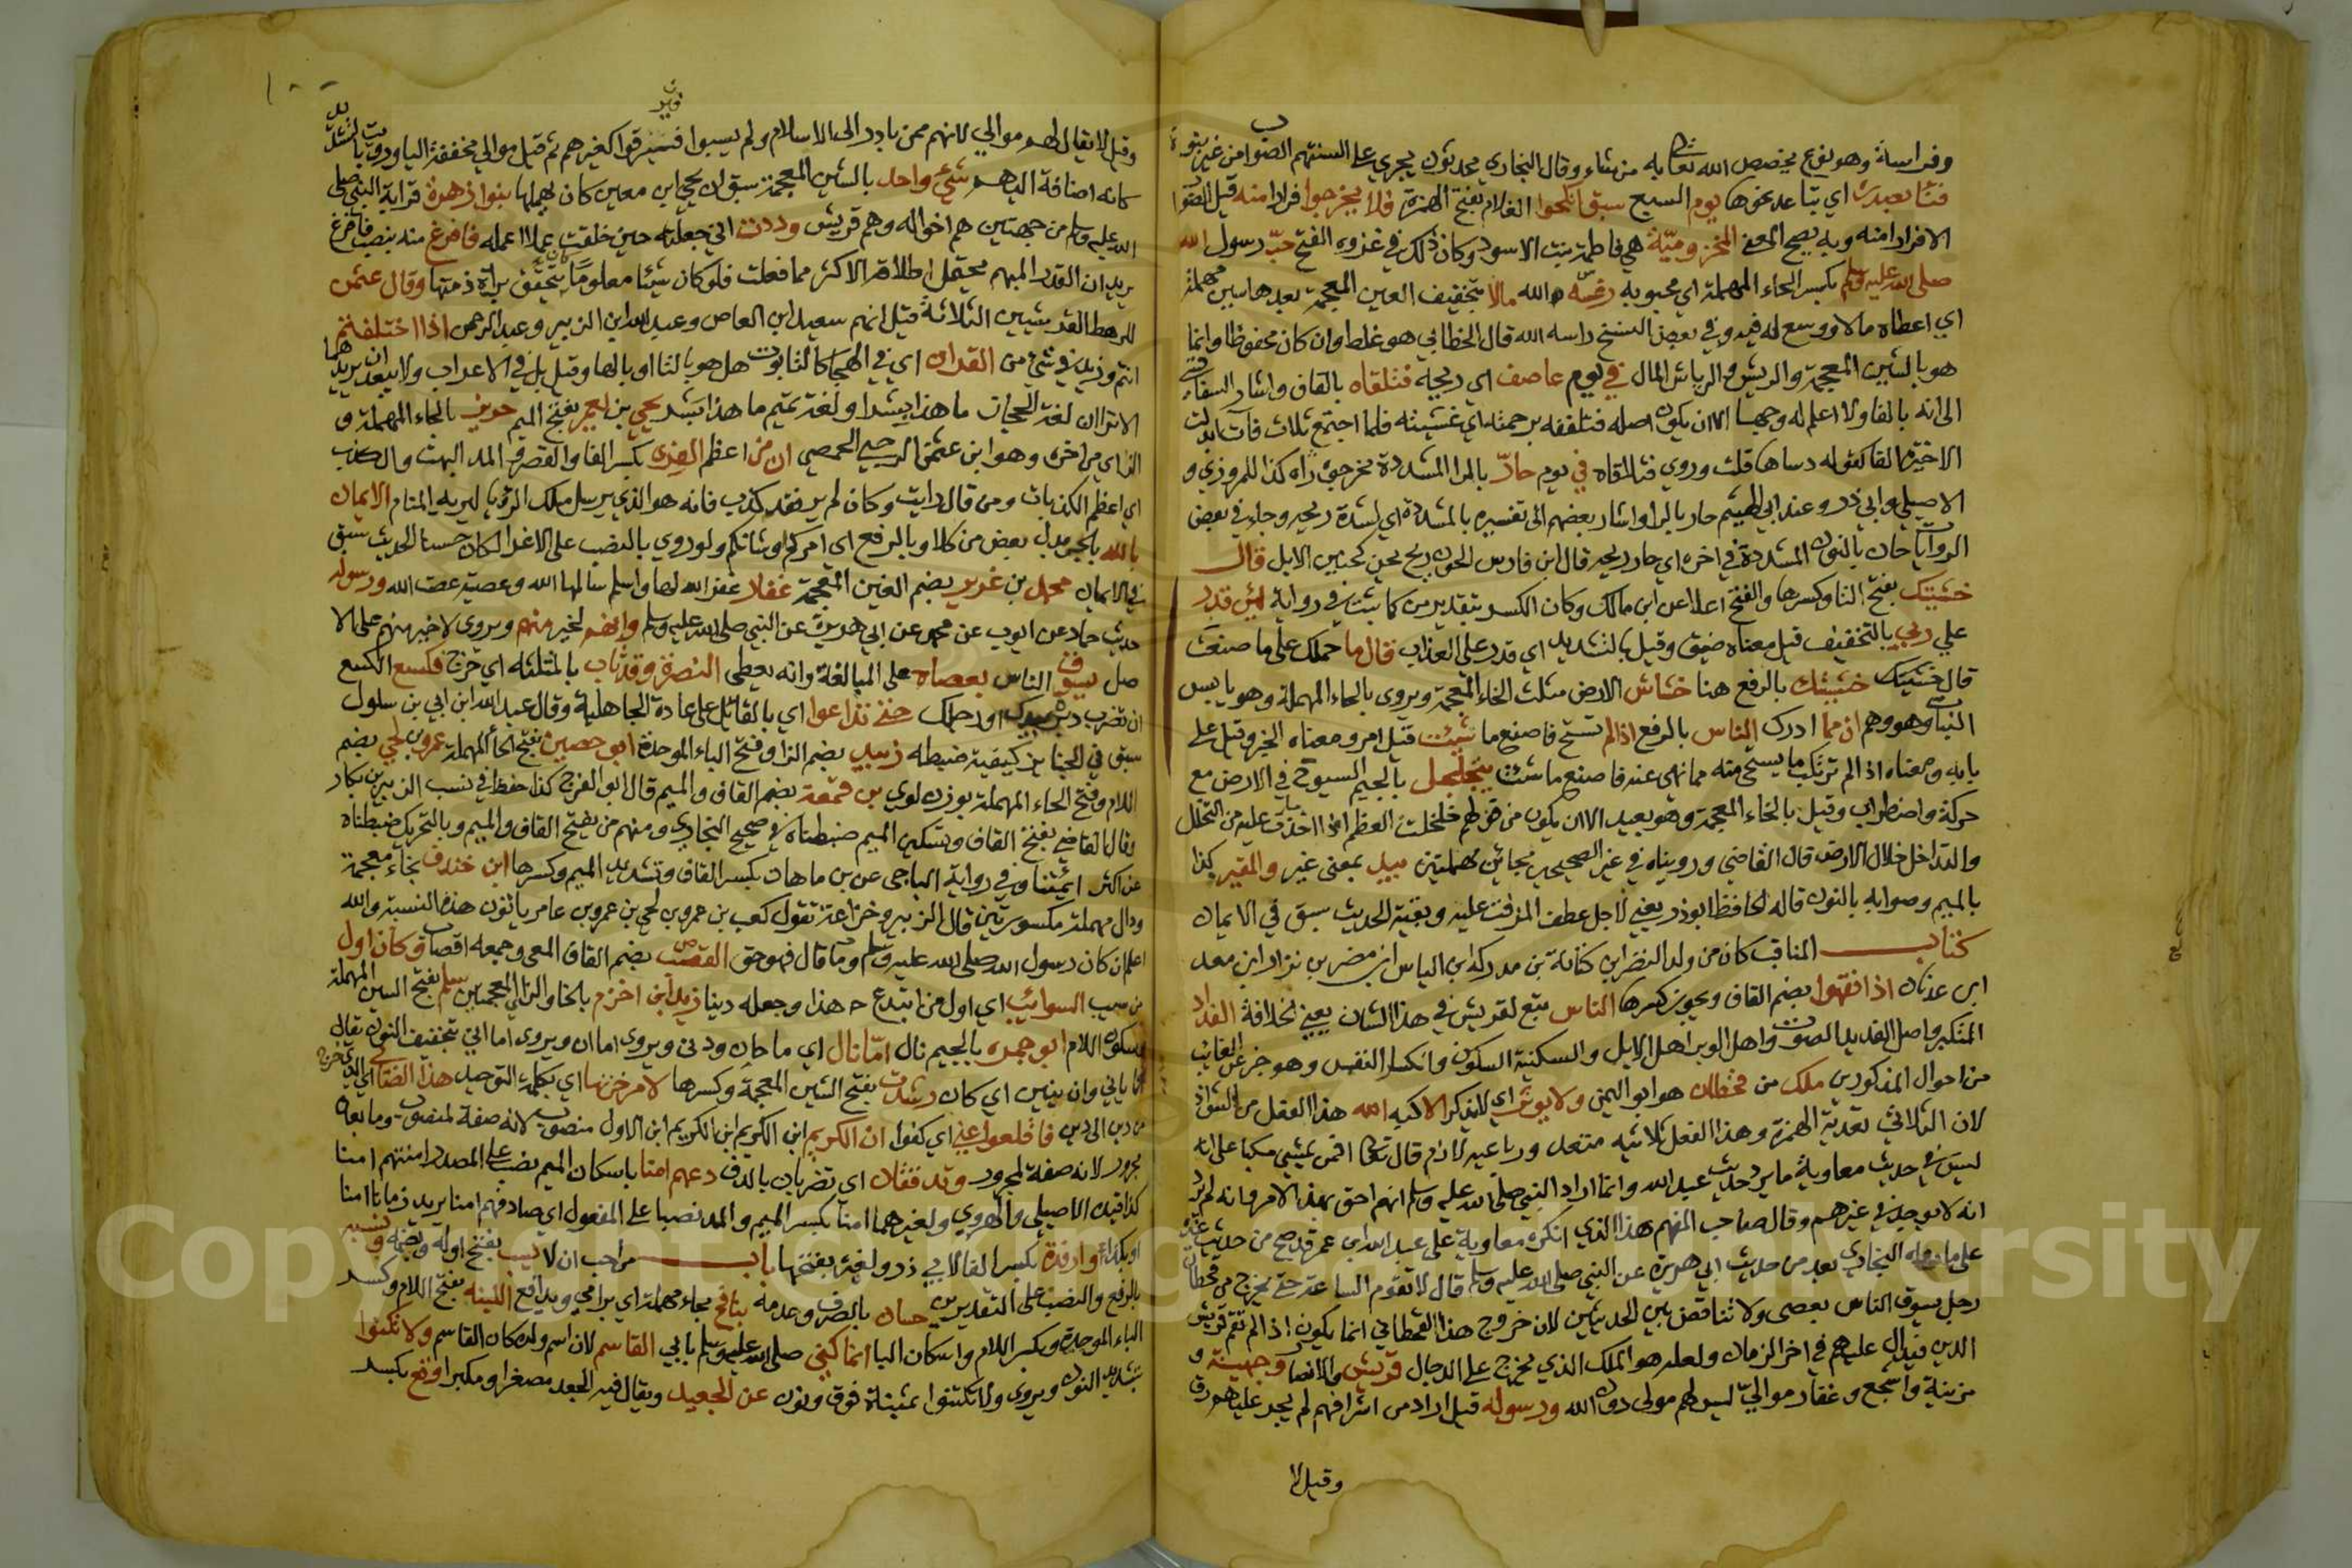 وفراسة وهو نوع يختص الله تعالى به من شاء وقال البخاري محدثون يجري على السنتهم الصواب من غير نبوة
فتنا بعيدة اي تباعد نحوها يوم السبع سبق انكحوا الغلام بفتح الهمزة فلا يخرجوا فرارا منه قيل الصواب
الافرارا منه وبه يصح المعنى المخزومية هي فاطمة بنت الاسود وكان ذلك في غزوة الفتح حب رسول الله
صلى الله عليه وسلم بكسر الحاء المهملة اي محبوبه رغسه الله مالا بتخفيف الغين المعجمة بعدها سين مهملة
اي اعطاه مالا ووسع له فيه وفي بعض النسخ راسه الله قال الخطابي هو غلط وان كان محفوظا وانما
هو بالشين المعجمة والريش والرياش المال في يوم عاصف اي ريحه فتلقاه بالقاف واشار السفاقسي
الى انه بالفاء ولا اعلم له وجها الا ان يكون اصله فتلففه برحمته اي غشيته فلما اجتمع ثلاث فاآت ابدلت
الاخيرة الفا كقوله دساها قلت وروي فتلافاه في يوم حار بالراء المشددة مخرجون راه كذا للمروزي و
الاصيلي وابي ذر وعند ابي الهيثم حار بالراء واشار بعضهم الى تفسيره بالشدة اي لشدة ريحه وجاء في بعض
الروايات حان بالنون المشددة في اخره اي حار ريحه قال ابن فارس الحون ريح يحن كحنين الابل قال
خشيتك بفتح التاء وكسرها والفتح اعلا عن ابن مالك وكان الكسر بتقدير من كما ثبت في رواية لئن قدر
علي ربي بالتخفيف قيل معناه ضيق وقيل بالتشديد اي قدر على العذاب قال ما حملك على ما صنعت
قال خشيتك خشيتك بالرفع هنا خشاش الارض مثلث الخاء المعجمة ويروى بالحاء المهملة وهو يابس
النبات وهو وهم ان مما ادرك الناس بالرفع اذا لم تستح فاصنع ما شئت قيل امر ومعناه الخبر وقيل على
بابه ومعناه اذا لم ترتكب ما يستحى منه مما نهي عنه فاصنع ما شئت يتجلجل بالجيم السيوخ في الارض مع
حركة واضطراب وقيل بالخاء المعجمة وهو بعيد الا ان يكون من قولهم خلخلت العظم اذا اخذت ما عليه من التخلل
والتداخل خلال الارض قال القاضي ورويناه في غير الصحيحين بحائين مهملتين بيد بمعنى غير والمقير كذا
بالميم وصوابه بالنون قاله الحافظ ابو ذر يعني لاجل عطف المزفت عليه وبقية الحديث سبق في الايمان
كتاب المناقب كان من ولد النضر ابن كنانة بن مدركة ابن الياس ابن مضر بن نزار ابن معد
ابن عدنان اذا فقهوا بضم القاف ويجوز كسرها الناس تبع لقريش في هذا الشان يعني الخلافة الفداد
المتكبر واصل الفديد الصوت واهل الوبر اهل الابل والسكينة السكون وانكسار النفس وهو خبر عن الغالب
من احوال المذكورين ملك من قحطان هو ابو اليمن ولا يوثر اي لا يذكر الا كبه الله هذا الفعل من الشواذ
لان الثلاثي تعديه الهمزة وهذا الفعل ثلاثيه متعد ورباعيه لازم قال تعالى افمن يمشي مكبا على انه
ليس في حديث معاوية ما يرد حديث عبد الله وانما اراد النبي صلى الله عليه وسلم انهم احق بهذا الامر فانه لم يرد
انه لا يوجد في غيرهم وقال صاحب المفهم هذا الذي انكره معاوية على عبد الله ابن عمر قد صح من حديث غيره
على ما رواه البخاري بعد من حديث ابي هريرة عن النبي صلى الله عليه وسلم قال لا تقوم الساعة حتى يخرج من قحطان
رجل يسوق الناس بعصى ولا تناقض بين الحديثين لان خروج هذا القحطاني انما يكون اذا لم تقم قريش
الدين فيدال عليهم في اخر الزمان ولعله هو الملك الذي يخرج على الدجال قريش والانصار وجهينة و
مزينة واشجع وغفار موالي ليس لهم مولى دون الله ورسوله قيل اراد من اشرافهم لم يجر عليهم رق
وقيل لا
وقيل لا يقال لهم موالي لانهم ممن بادر الى الاسلام ولم يسبوا فيسترقوا كغيرهم ثم قيل موالي مخففة الياء ورويت بالتشديد
كانه اضافة اليهم شيء واحد بالشين المعجمة سبق ان يحيى ابن معين كان يهملها بنوا زهرة قرابة النبي صلى
الله عليه وسلم من جهتين هم اخواله وهم قريش وددت اني جعلت حين خلفت عملا اعمله فافرغ منه بنصب فافرغ
يريد ان القدر المبهم يحتمل اطلاقه الاكثر مما فعلت فلو كان شيئا معلوما يتحقق براة ذمتها وقال عثمن
للرهط القرشيين الثلاثة قيل انهم سعيد ابن العاص وعبد الله ابن الزبير وعبد الرحمن اذا اختلفتم
انتم وزيد في شيء من القران اي في الهجاء كالتابوت هل هو بالتاء او بالهاء وقيل بل في الاعراب ولا يبعد ان يريدهما
الا ترا ان لغة الحجاز ما هذا بشرا ولغة تميم ما هذا بشر يحيى بن يعمر بفتح الميم حريز بالحاء المهملة و
الزاي في اخره وهو ابن عثمن الرحبي الحمصي ان من اعظم الفرى بكسر الفاء والقصر والمد البهت والكذب
اي اعظم الكذبات ومن قال رايت وكان لم ير فقد كذب فانه هو الذي يرسل ملك الرؤيا ليريه المنام الايمان
بالله بالجر بدل بعض من كل او بالرفع اي امركم او شانكم ولو روي بالنصب على الاغراء لكان حسنا الحديث سبق
في الايمان محمد بن غرير بضم الغين المعجمة غفلا غفر الله لها واسلم سالمها الله وعصية عصت الله ورسوله
حديث حماد عن ايوب عن محمد عن ابي هريرة عن النبي صلى الله عليه وسلم وانهم لخير منهم ويروى لاخير منهم على الا
صل يسوق الناس بعصاه على المبالغة وانه يعطى النصرة وقد ثاب بالمثلثه اي خرج فكسع الكسع
ان تضرب دبره بيدك او رجلك حتى تداعوا اي بالقائل على عادة الجاهلية وقال عبد الله ابن ابي بن سلول
سبق في الجنايز كيفية ضبطه زبيد بضم الزاي وفتح الباء الموحدة ابو حصين بفتح الحاء المهملة عمرو بن لحي بضم
اللام وفتح الحاء المهملة بوزن لوي بن قمعة بضم القاف والميم قال ابو الفرج كذا حفظ في نسب الزبير بن بكار
وقال القاضي بفتح القاف وتسكين الميم ضبطناه في صحيح البخاري ومنهم من يفتح القاف والميم وبالتحريك ضبطناه
عن اكثر ايمتنا وفي رواية الباجي عن بن ماهان بكسر القاف وتشديد الميم وكسرها ابن خندف بخاء معجمة
ودال مهملة مكسورتين قال الزبير وخزاعة تقول كعب بن عمرو بن لحي بن عمرو بن عامر ياثون هذه النسبة والله
اعلم ان كان رسول الله صلى الله عليه وسلم وما قال فهو حق القصب بضم القاف المعى وجمعه اقصاب وكان اول
من سيب السوائب اي اول من ابتدع هذا وجعله دينا زيد ابن اخزم بالخاء والزاي المعجمتين سلم بفتح السين المهملة
وسكون اللام ابو جمرة بالجيم نال اما نال اي ما حان ودنى ويروى اما ان ويروى اما اني بتخفيف النون يقال
انا ياني وان يئين اي كان رشدت بفتح الشين المعجمة وكسرها لاصرخن بها اي بكلمة التوحيد هذا الصابي الذي خرج
من دين الى دين فاقلعوا عني اي كفوا ان الكريم ابن الكريم ابن الكريم ابن الاول منصوب لانه صفة لمنصوب وما بعده
مجرور لانه صفة لمجرور وتدففان اي تضربان بالدف دعهم امنا باسكان الميم نصب على المصدر امنتهم امنا
كذا قيده الاصيلي والهروي ولغيرهما امنا بكسر الميم والمد نصبا على المفعول اي صادفهم امنا يريد زمانا امنا
او بلدا امنا وارفدة بكسر الفاء لابي ذر ولغيره بفتحها باب من احب ان لا يسب بفتح اوله وبضمه ونسبه
بالرفع والنصب على التقديرين حسان بالصرف وعدمه ينافح بحاء مهملة اي يرامي ويدافع اللبنة بفتح اللام وكسر
الباء الموحدة وبكسر اللام واسكان الباء انما كني صلى الله عليه وسلم بابي القاسم لان اسم ولده كان القاسم ولا تكنوا
بتشديد النون ويروى ولا تكتنوا بمثناة فوق ونون عن الجعيد ويقال فيه الجعد مصغرا ومكبرا وقع بكسر
Copyright © King Saud University